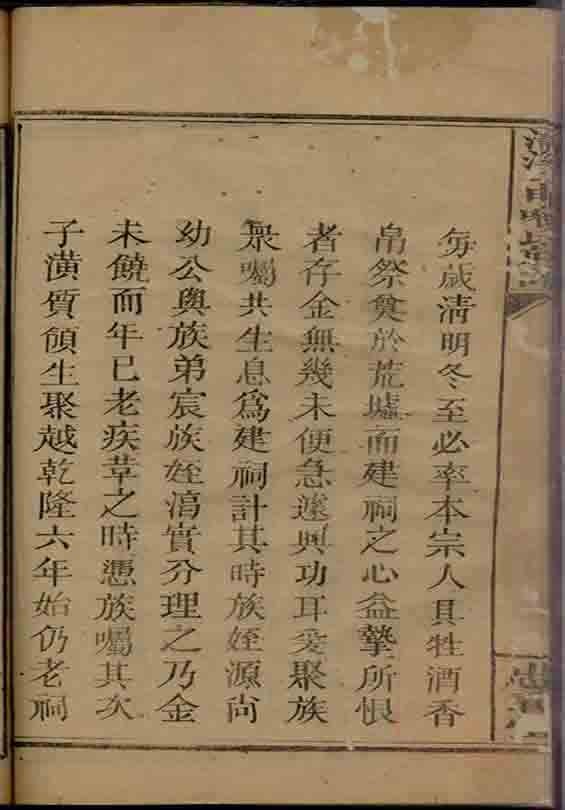 每歲清明冬至必率本宗人具牲酒香
帛祭奠於荒墟而建祠之心益摯所恨
者存金無幾未便急遽興功耳爰聚族
衆囑共生息爲建祠計其時族姪源尚
幼公與族弟宸族姪滈實分理之乃金
未饒而年已老疾革之時憑族囑其次
子潢質領生聚越乾隆六年始仍老祠